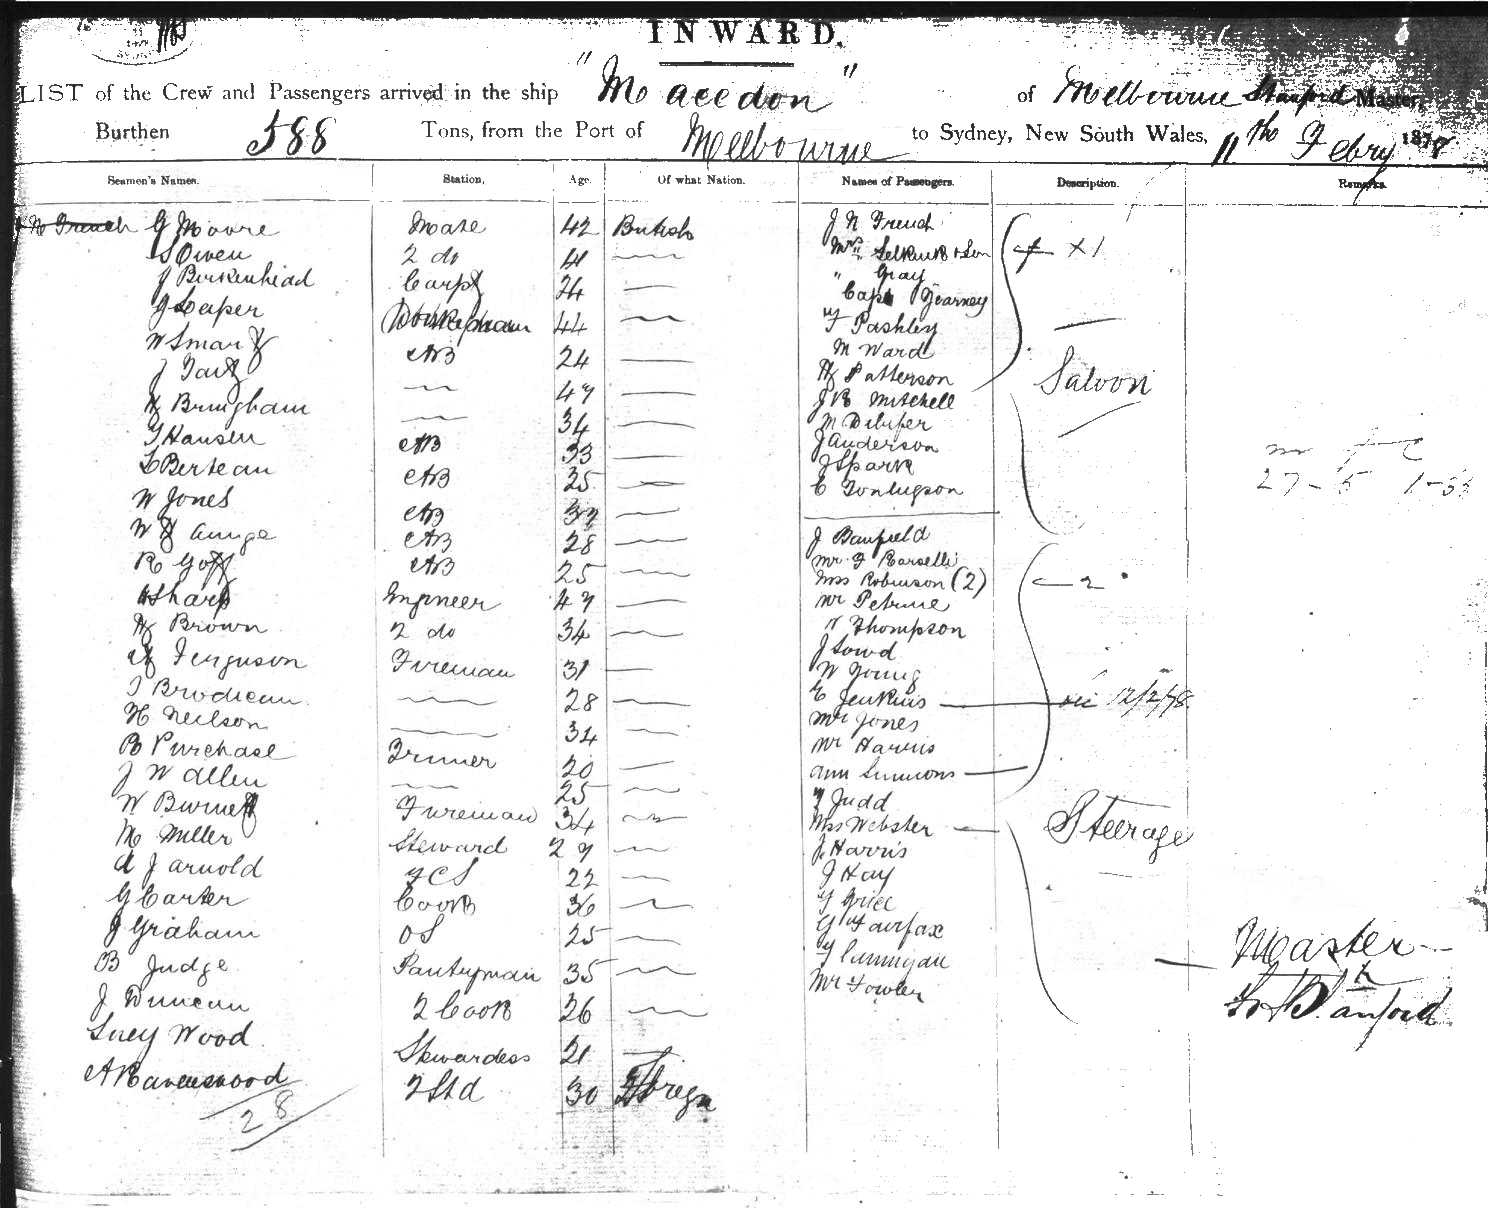 INWARD.
LIST of the Crew and Passengers arrived in the ship "Macedon" of Melbourne Stanford Master,
Burthen 588 Tons, from the Port of Melbourne to Sydney, New South Wales, 11th Febry 1878
Seamen's Names. Station. Age. Of what Nation. Names of Passengers. Description. Remarks.
G Moore Mate 42 British
S Owen 2 do 41
J Birkenhead Carpt
G Leaper 44
W Smart AB 24
J Tait 47
H Bringham 34
T Hansen AB 33
L Berteau AB 25
W Jones AB
W H AB 28
R Goff AB 25
Sharp Engineer 47
H Brown 2 do 34
A Ferguson Fireman 31
J Brodieau 28
H Neilson 34
R Purchase Trimer 20
J W Allen 25
W Burnett Fireman 34
M Miller Steward 27
A J Arnold FCS 22
G Carter Cook 36
J Graham OS 25
B Judge Pantryman 35
J Duncan 2 Cook 26
Lucy Wood Stewardess 21
A Ravenswood 2 Std 30 Foregn
28
J N French
Mrs Selkirk & Son
" Gray
Capt Gearney
F Pashley
M Ward
H Patterson
J B Mitchell
M
J Anderson
J Spark
C
X 1
Saloon
J Banfield
Mr F
Mrs Robinson (2)
Mr Petrine
T Thompson
J Lowd
W Young
E Jenkins 12/2/78
Mr Jones
Mr Harris
Ann Simmons
T Judd
Mrs Webster
J Harris
J Hay
T Grice
G Fairfax
T
Mr Fowler
2
Steerage
27-5
Master
Stanford